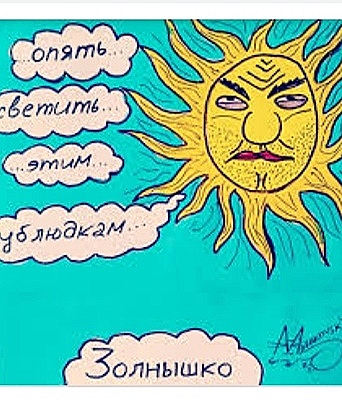 ...опять...
светить...
...этим...
ублюдкам...
Золнышко